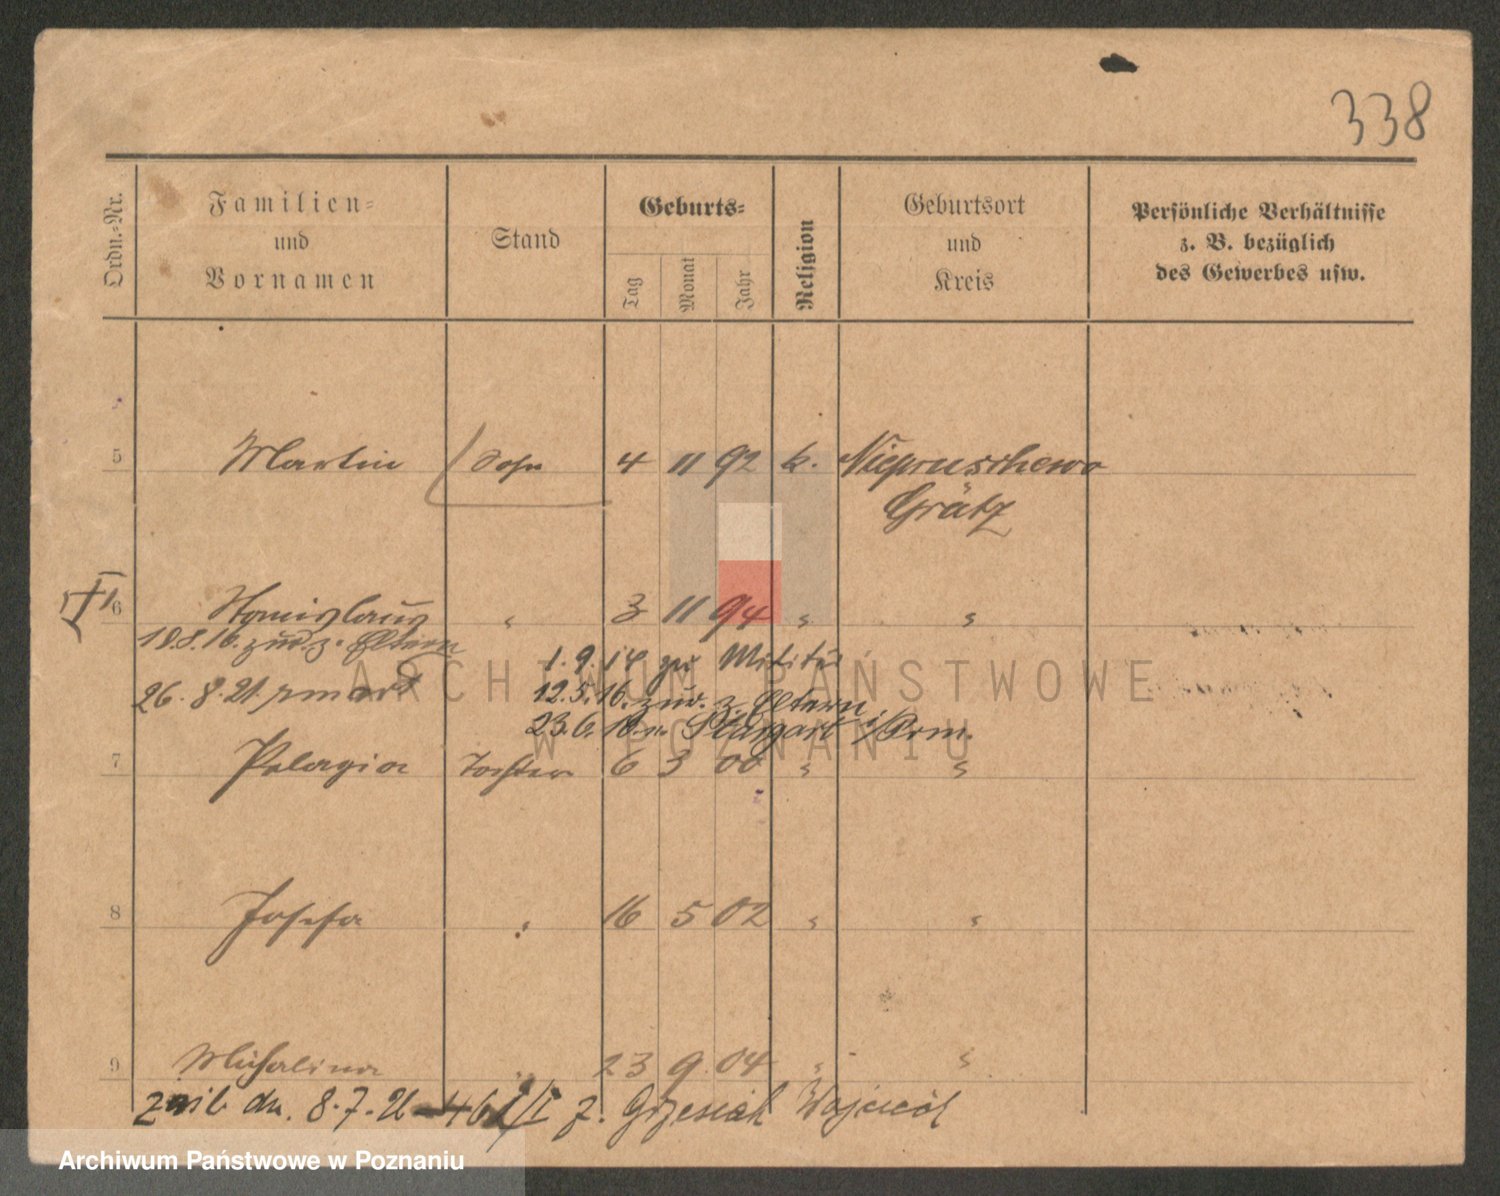 338
Ordn.-Nr. Familien- und Vornamen Stand Geburts- Tag Monat Jahr Religion Geburtsort und Kreis Persönliche Verhältnisse z. B. bezüglich des Gewerbes usw.
5 Martin Sohn 4 11 92 k. Niepruschewo
Grätz
6 Stanislaus " 3 11 94 " "
18.8.16. zur. z. Eltern
1.9.14 zu Militär
26.8.21. zmarł
12.5.16. zur. z. Eltern
23.6.18 n. Stargart i/Pom.
7 Pelagia Tochter 6 3 00 " "
8 Josefa " 16 5 02 " "
9 Michalina " 23 9 04 " "
dn. 8.7.21 46 I/I z. Grzesiak Wojciech
ARCHIWUM PAŃSTWOWE
W POZNANIU
Archiwum Państwowe w Poznaniu